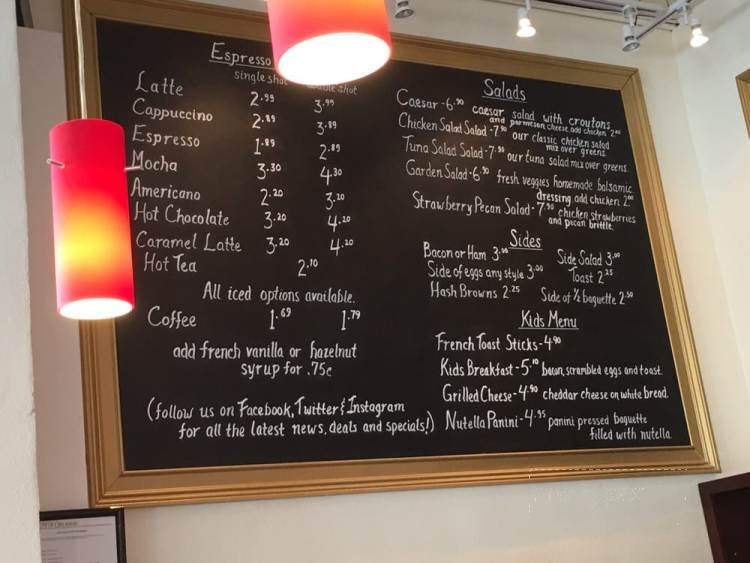 Espresso
single shot
Latte 2.99 3.99
Cappuccino 2.89 3.89
Espresso 1.89 2.89
Mocha 3.30 4.30
Americano 2.20 3.20
Hot Chocolate 3.20 4.20
Caramel Latte 3.20 4.20
Hot Tea 2.10
All iced options available.
Coffee 1.69 1.79
add french vanilla or hazelnut
syrup for .75¢
(follow us on Facebook, Twitter & Instagram
for all the latest news, deals and specials!)
Salads
Caesar - 6.90 caesar salad with croutons
and parmesan cheese, add chicken 2.00
Chicken Salad Salad - 7.90 our classic chicken salad
mix over greens.
Tuna Salad Salad - 7.90 our tuna salad mix over greens.
Garden Salad - 6.90 fresh veggies homemade balsamic
dressing add chicken 2.00
Strawberry Pecan Salad - 7.90 chicken, strawberries
and pecan brittle.
Sides
Bacon or Ham 3.00 Side Salad 3.00
Side of eggs any style 3.00 Toast 2.25
Hash Browns 2.25 Side of ½ baguette 2.50
Kids Menu
French Toast Sticks - 4.90
Kids Breakfast - 5.10 bacon, scrambled eggs and toast.
Grilled Cheese - 4.90 cheddar cheese on white bread.
Nutella Panini - 4.95 panini pressed baguette
filled with nutella.